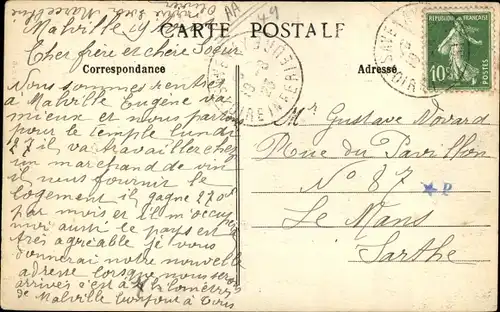 CARTE POSTALE
Correspondance
Adresse
Malville 19
Cher frère et chère Soeur
Nous sommes rentrés
à Malville Eugène va
mieux et nous partons
pour le temple lundi
27 il va travailler chez
un marchand de vin
il nous fournir le
logement il gagne 270f
par mois et il m'occupe
moi aussi le pays est
très agréable je vous
donnerai notre nouvelle
adresse lorsque nous serons
arrivés c'est à kilomètres
de Malville bonjour à tous
Mr Gustave Novard
Rue du Pavillon
No 87
Le Mans
Sarthe
10c
POSTES
SAVENAY
LOIRE INFRE
P
AA
49